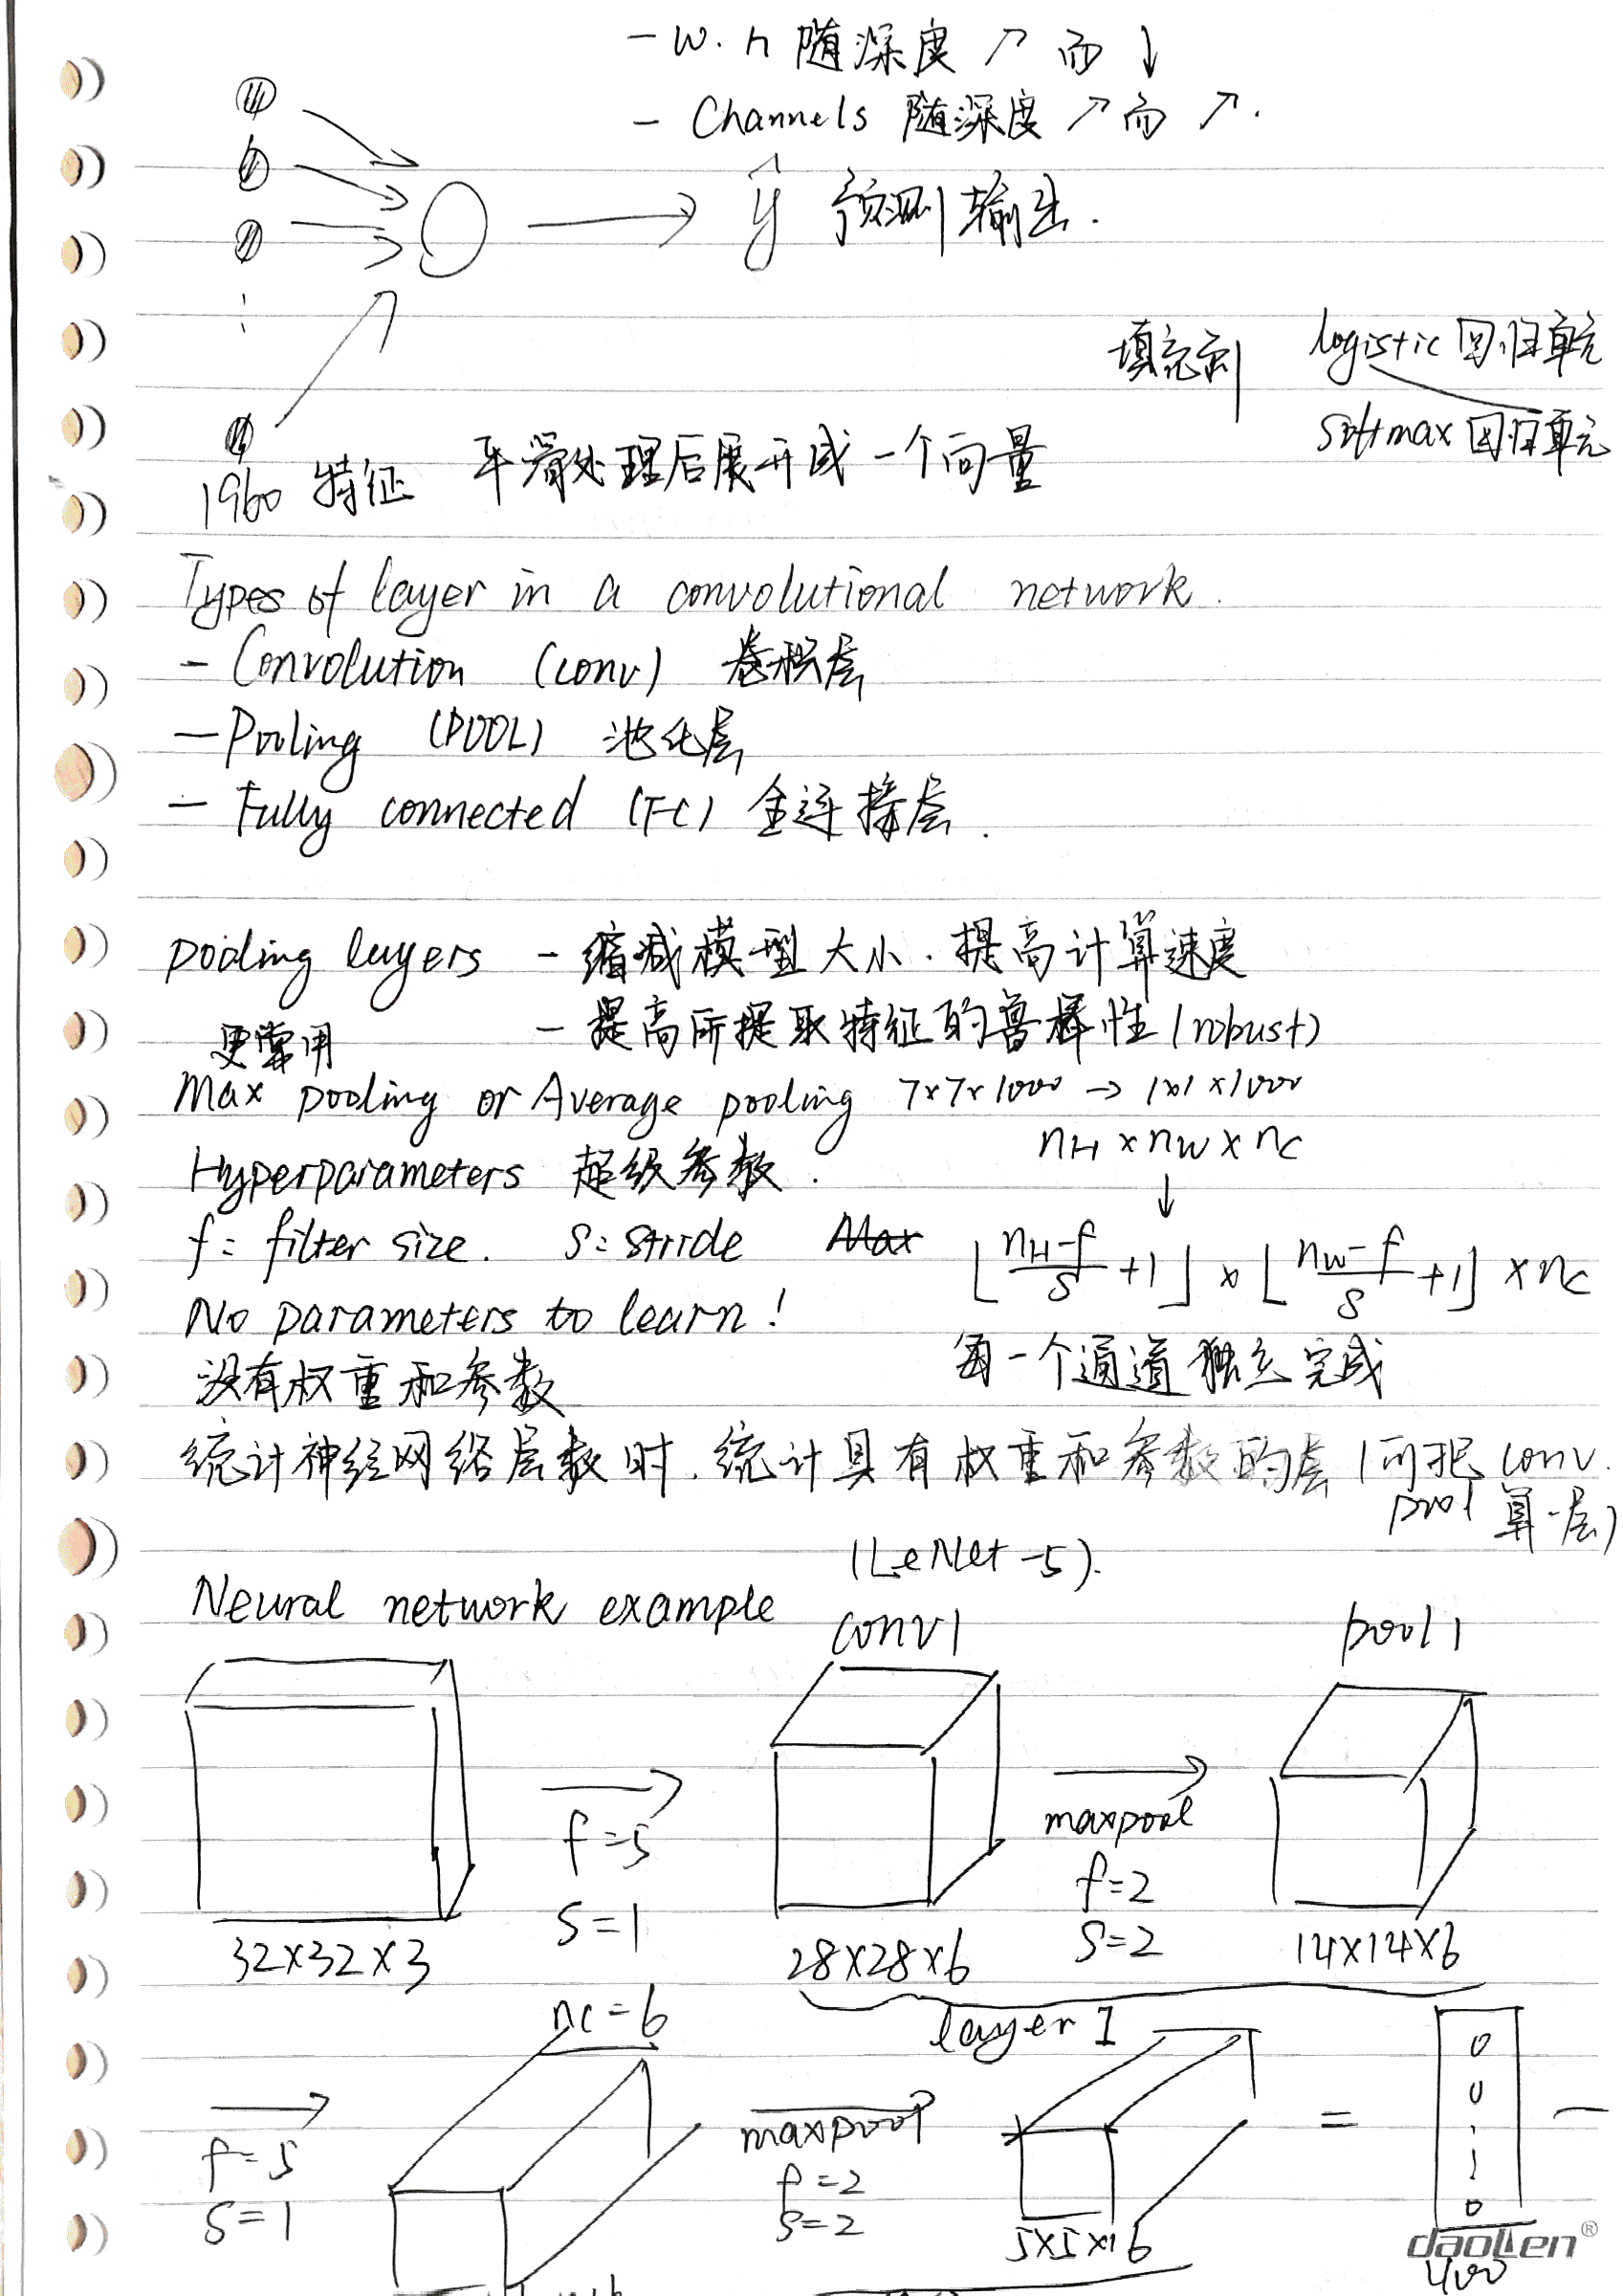 - w.h 随深度 ↗ 而 ↓
- Channels 随深度 ↗ 而 ↗.
ŷ 预测输出.
填充到 logistic 回归单元
softmax 回归单元
1960 特征 平滑处理后展开成一个向量
Types of layer in a convolutional network.
- Convolution (conv) 卷积层
- Pooling (POOL) 池化层
- Fully connected (FC) 全连接层.
pooling layers - 缩减模型大小. 提高计算速度
- 提高所提取特征的鲁棒性 (robust)
更常用
Max pooling or Average pooling 7×7×1000 → 1×1×1000
Hyperparameters 超级参数. nH × nW × nC
↓
f: filter size. s: stride ⌊(nH-f)/s +1⌋ × ⌊(nW-f)/s +1⌋ × nC
No parameters to learn!
没有权重和参数 每一个通道独立完成
统计神经网络层数时. 统计具有权重和参数的层 (可把 conv.
pool 算一层)
(LeNet-5).
Neural network example
conv1 pool1
f=5 maxpool
s=1 f=2
s=2
32×32×3 28×28×6 14×14×6
nc=6 layer 1
f=5 maxpool =
s=1 f=2
s=2
5×5×16
daolen®
400